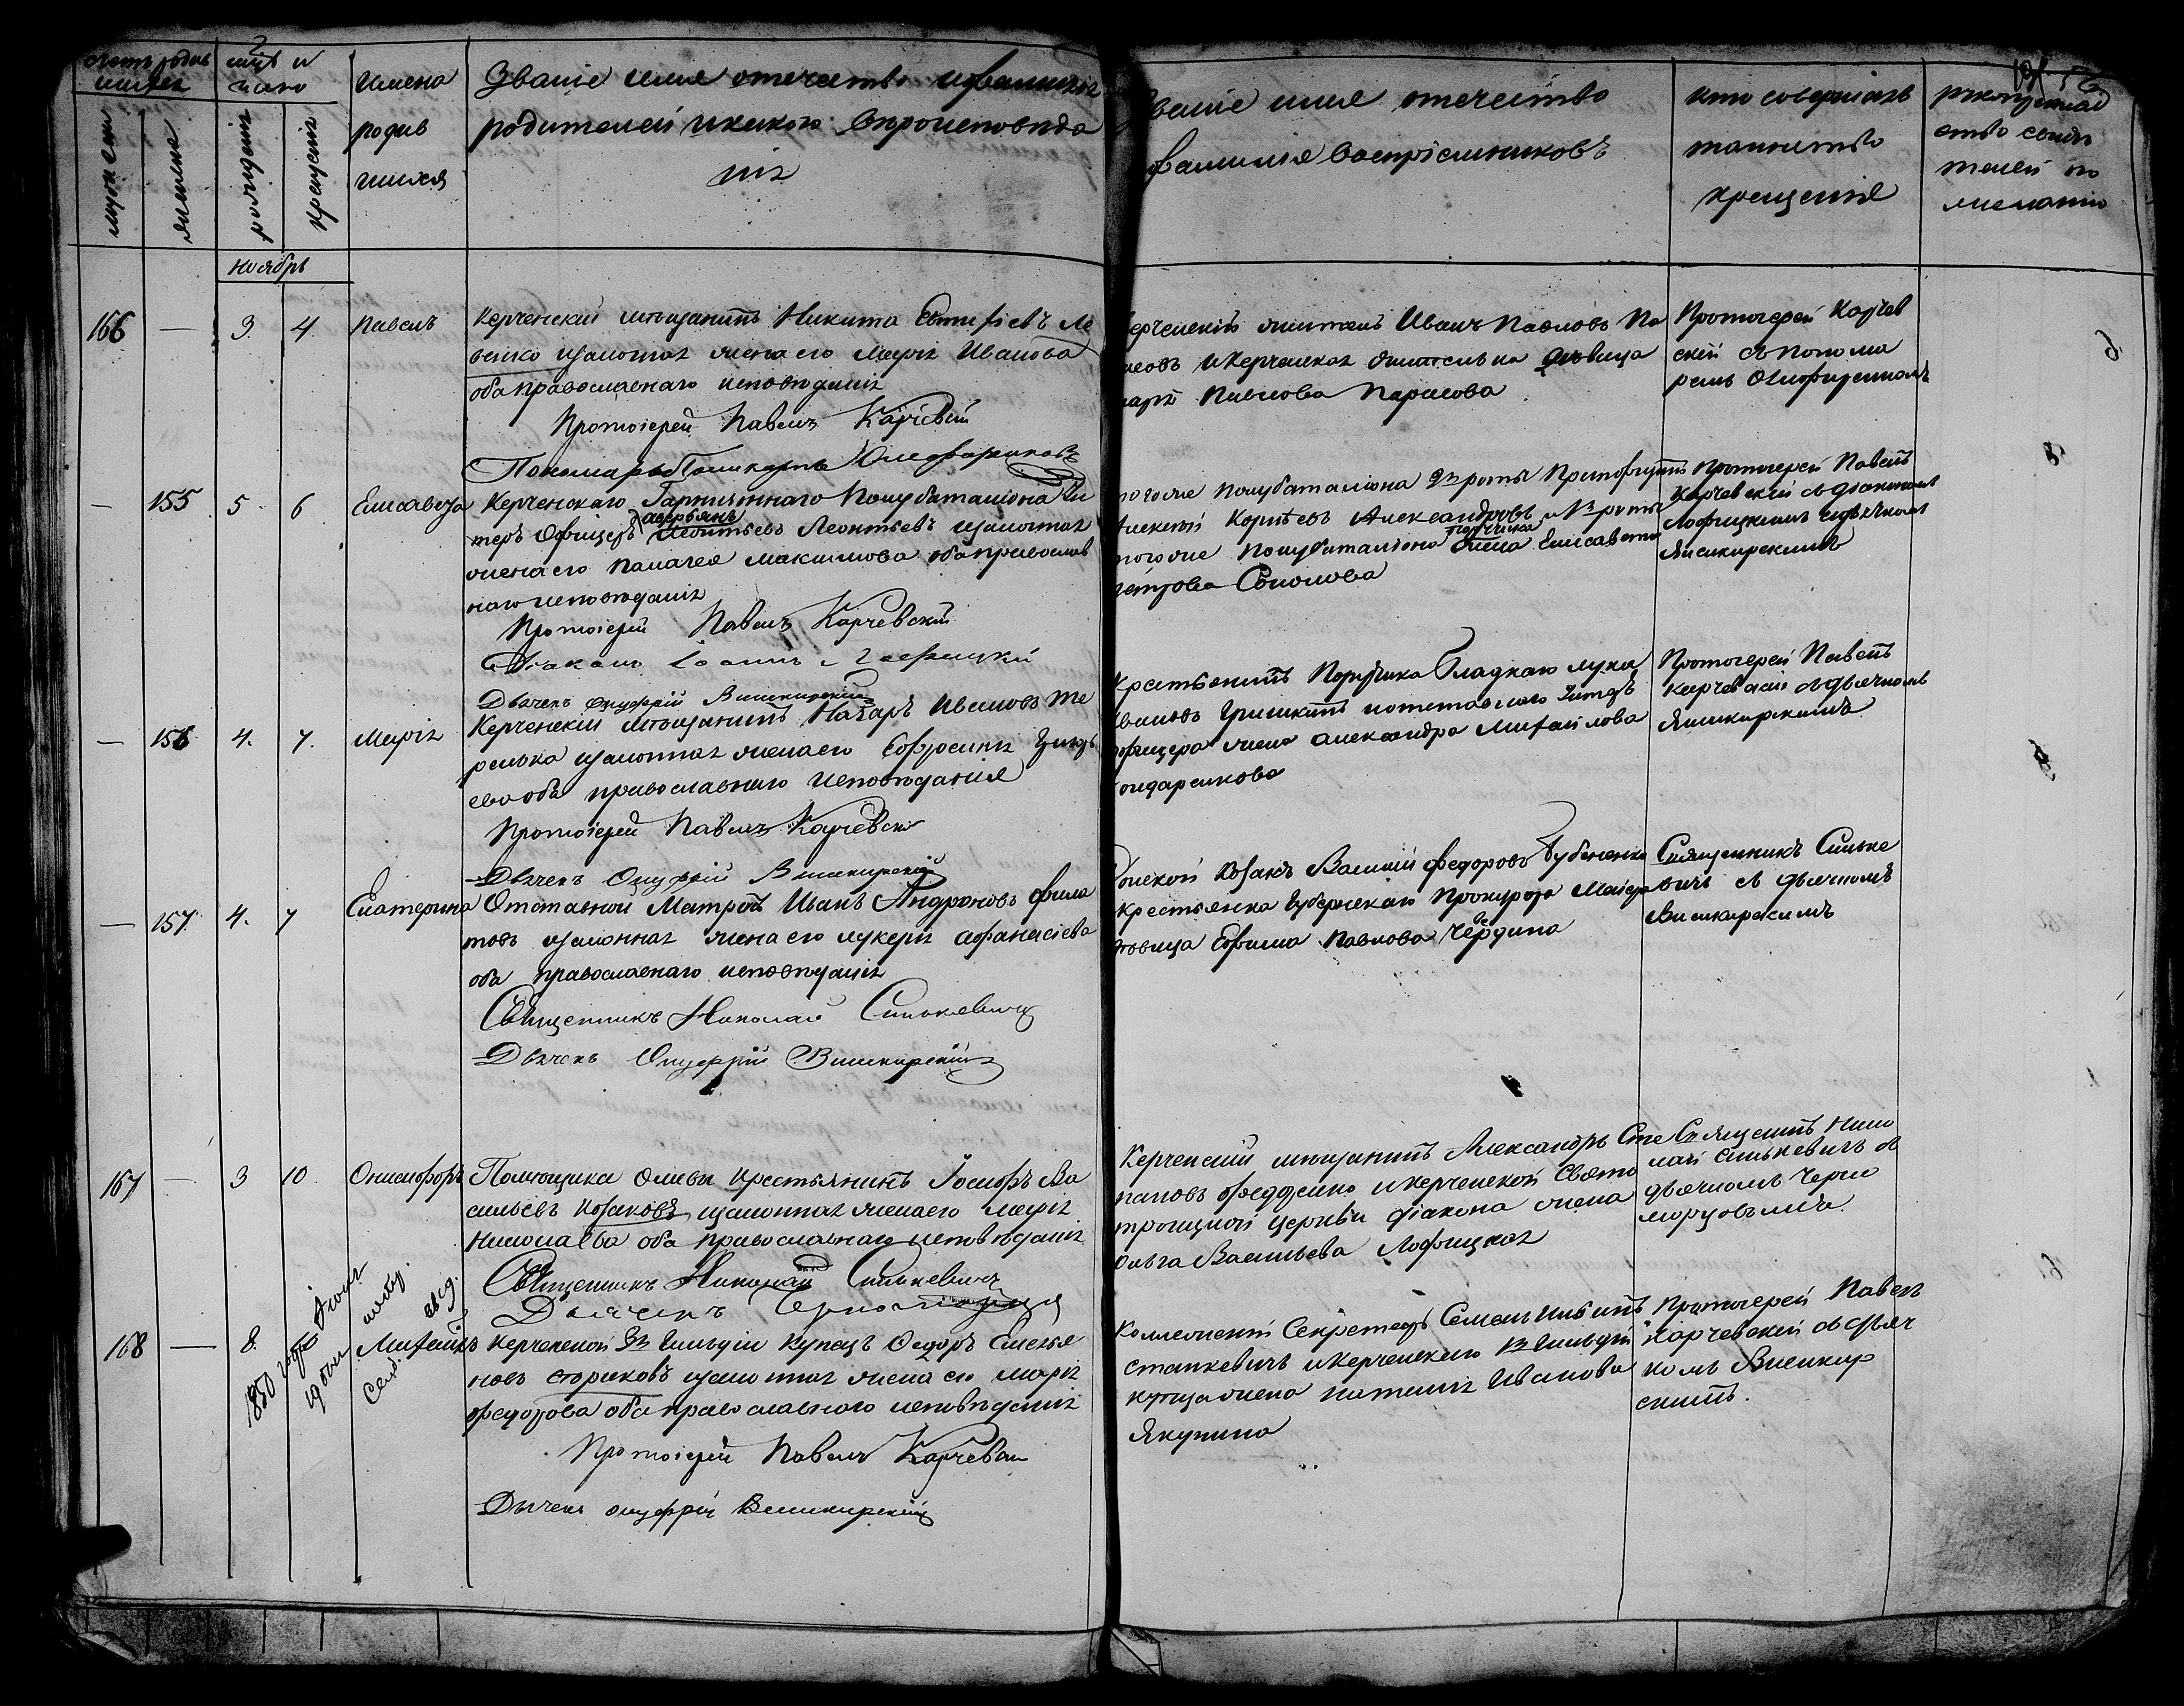 Счетъ родив
шихся
мужеска
женска
мцъ и
число
рожденія
крещенія
Имена
родив
шихся
Званіе имя отечество и фамилія
родителей и какого вѣроисповѣда
нія
Званіе имя отечество
фамилія воспріемниковъ
кто совершалъ
таинство
крещенія
рукоприклад
ство свидѣ
телей по
желанію
Ноябрь
166 — 3 4 Павелъ
Керченскій мѣщанинъ Никита Евтифіевъ Ле
венко законная жена его Марія Иванова
оба православнаго исповѣданія
Протоіерей Павелъ Карчевскій
Пономарь Поликарпъ
Керченскій житель Иванъ Павловъ Па
и Керченская жителька дѣвица
Павлова Парасова
Протоіерей Карчев
скій съ понома
ремъ
— 155 5 6 Елисавета
Керченскаго Гарнизоннаго Полубаталіона Ун
теръ Офицеръ Аверьянъ Леонтьевъ законная
жена его Палагея Максимова оба православ
наго исповѣданія
Протоіерей Павелъ Карчевскій
Діаконъ Іоаннъ Лофицкій
Дьячекъ Онуфрій Вишкирскій
тогоже Полубаталіона 2й роты
Алексѣй Корнѣевъ Александровъ и 1й роты
тогоже Полубаталіона Поручика жена Елисавета
Петрова Соколова
Протоіерей Павелъ
Карчевскій съ діакономъ
Лофицкимъ и дьячкомъ
Вишкирскимъ
— 156 4. 7. Марія
Керченскій мѣщанинъ Назаръ Ивановъ Те
релька законная жена его Ефросинія
ева оба православнаго исповѣданія
Протоіерей Павелъ Карчевскій
Дьячекъ Онуфрій Вишкирскій
Крестьянинъ Поручика Гладкаго Лука
Ивановъ Гришкинъ и отставнаго Унтеръ
офицера жена Александра Михайлова
Бондаренкова
Протоіерей Павелъ
Карчевскій съ дьячкомъ
Вишкирскимъ
— 157 4. 7 Екатерина
Отставной Матрозъ Иванъ Андроновъ Фила
товъ законная жена его Лукерія Афанасіева
оба православнаго исповѣданія
Священникъ Николай Синькевичъ
Дьячекъ Онуфрій Вишкирскій
Донской Козакъ Василій Федоровъ Бубененко
Крестьянка Губернскаго Прокурора
дѣвица Ефимія Павлова Чердина
Священникъ Синьке
вичъ съ дьячкомъ
Вишкирскимъ
167 — 3 10. Онисифоръ
Помѣщика Оливы крестьянинъ Іосифъ Ва
сильевъ Козаковъ законная жена его Марія
Николаева оба православнаго исповѣданія
Священникъ Николай Синькевичъ
Дьячекъ Черноморцовъ
Керченскій мѣщанинъ Александръ Сте
пановъ и Керченской Свято
троицкой церкви діакона жена
Ольга Васильева Лофицкая
Священникъ Нико
лай Синькевичъ съ
дьячкомъ Черно
морцовымъ
168 — 8.
1850 года
Михаилъ
Керченской 3й Гильдіи купецъ Федоръ Емелья
новъ Сториковъ законная жена его Марія
Федорова оба православнаго исповѣданія
Протоіерей Павелъ Карчевскій
Дьячекъ Онуфрій Вишкирскій
Коллежскій Секретарь Семенъ
Станкевичъ и Керченскаго 1й Гильдіи
купца жена Наталія Иванова
Якунина
Протоіерей Павелъ
Карчевскій съ дьяч
комъ Вишкир
скимъ.